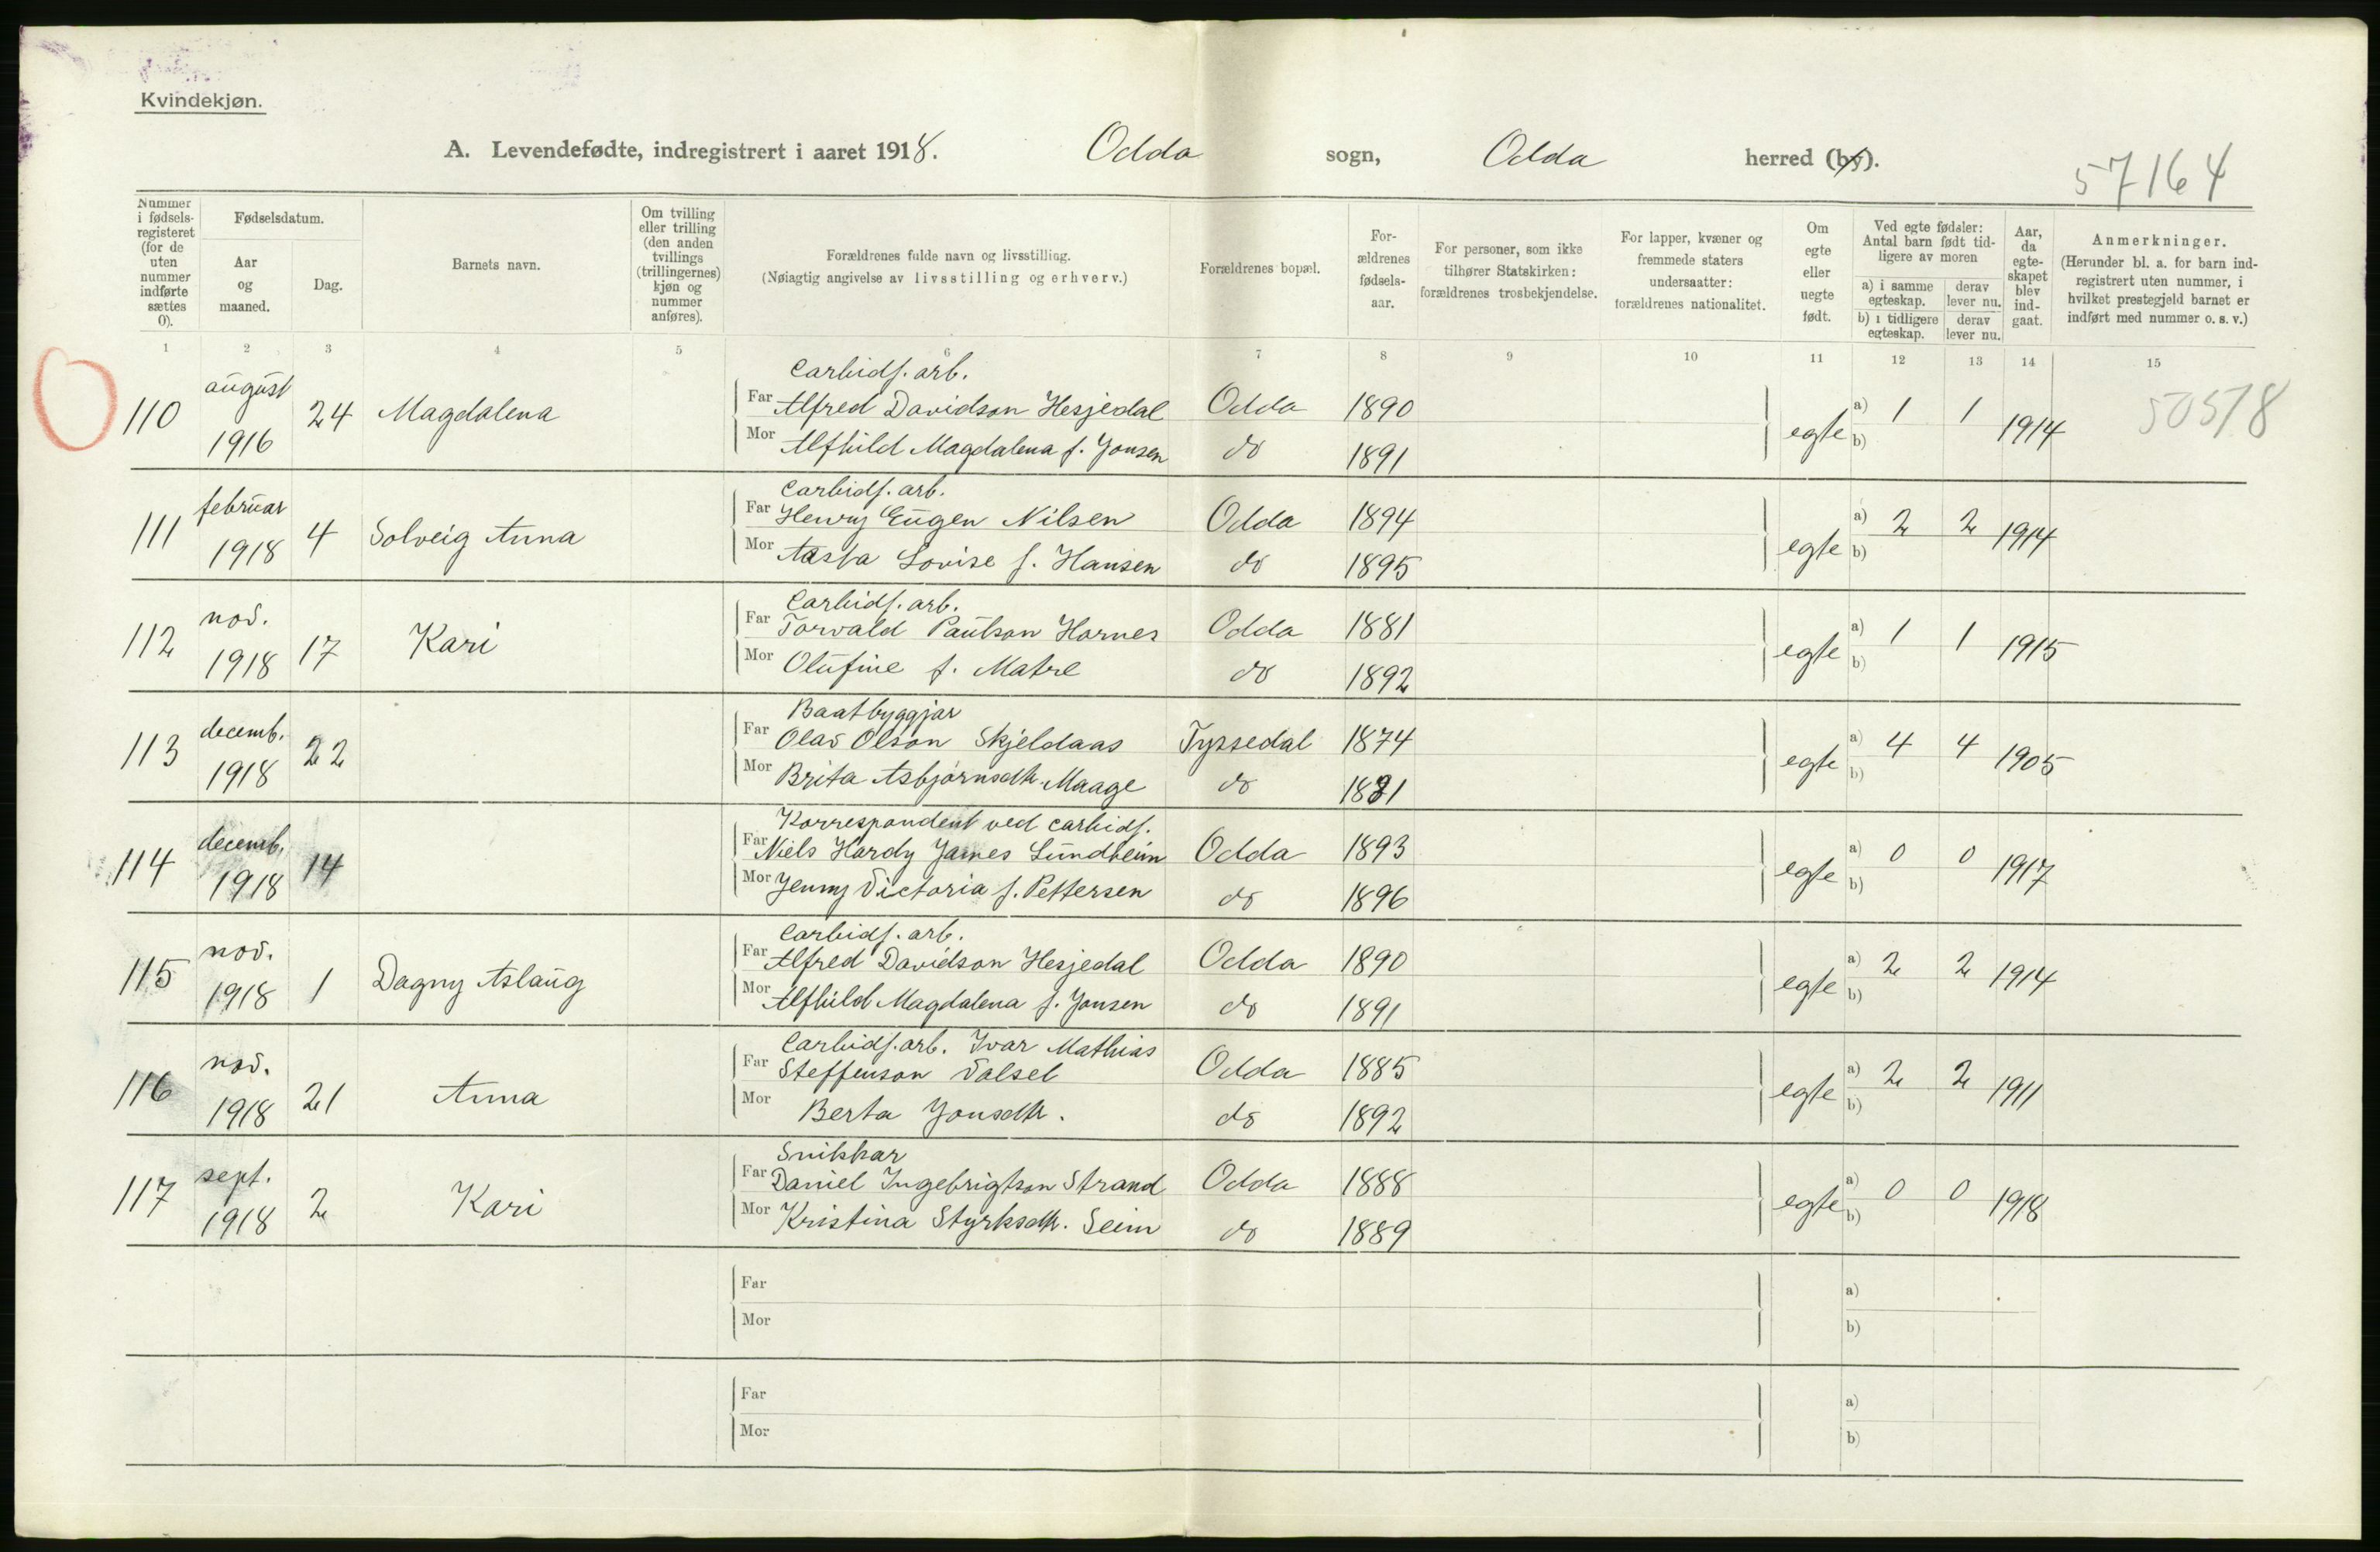 Kvindekjøn.
A. Levendefødte, indregistrert i aaret 1918. Odda sogn, Odda herred (by).
57164
Nummer i fødselsregisteret (for de uten nummer indførte sættes 0).
Fødselsdatum.
Aar og maaned.
Dag.
Barnets navn.
Om tvilling eller trilling (den anden tvillings (trillingernes) kjøn og nummer anføres).
Forældrenes fulde navn og livsstilling.
(Nøiagtig angivelse av livsstilling og erhverv.)
Forældrenes bopæl.
For-
ældrenes
fødsels-
aar.
For personer, som ikke
tilhører Statskirken:
forældrenes trosbekjendelse.
For lapper, kvæner og
fremmede staters
undersaatter:
forældrenes nationalitet.
Om
egte
eller
uegte
født.
Ved egte fødsler:
Antal barn født tid-
ligere av moren
a) i samme egteskap.
derav lever nu.
b) i tidligere egteskap.
derav lever nu.
Aar,
da
egte-
skapet
blev
ind-
gaat.
Anmerkninger.
(Herunder bl. a. for barn ind-
registrert uten nummer, i
hvilket prestegjeld barnet er
indført med nummer o. s. v.)
1 2 3 4 5 6 7 8 9 10 11 12 13 14 15
Carbidf. arb.
110 august 1916 24 Magdalena Far Alfred Davidson Hesjedal Odda 1890 egte a) 1 1 1914 50518
Mor Alfhild Magdalena f. Jonsen do 1891 b)
Carbidf. arb.
111 februar 1918 4 Solveig Anna Far Henry Eugen Nilsen Odda 1894 egte a) 2 2 1914
Mor Aasta Lovise f. Hansen do 1895 b)
Carbidf. arb.
112 nov. 1918 17 Kari Far Torvald Paulson Hornes Odda 1881 egte a) 1 1 1915
Mor Olufine f. Matre do 1892 b)
Baatbyggjar
113 decemb. 1918 22 Far Olav Olson Skjeldaas Tyssedal 1874 egte a) 4 4 1905
Mor Brita Asbjørnsdtr. Maage do 1881 b)
Korrespondent ved carbidf.
114 decemb. 1918 14 Far Niels Hardy James Lundheim Odda 1893 egte a) 0 0 1917
Mor Jenny Victoria f. Pettersen do 1896 b)
Carbidf. arb.
115 nov. 1918 1 Dagny Aslaug Far Alfred Davidson Hesjedal Odda 1890 egte a) 2 2 1914
Mor Alfhild Magdalena f. Jonsen do 1891 b)
Carbidf. arb. Ivar Mathias
116 nov. 1918 21 Anna Far Steffenson Valset Odda 1885 egte a) 2 2 1911
Mor Berta Jonsdtr. do 1892 b)
Snikkar
117 sept. 1918 2 Kari Far Daniel Ingebrigtson Strand Odda 1888 egte a) 0 0 1918
Mor Kristina Styrksdtr. Seim do 1889 b)
Far a)
Mor b)
Far a)
Mor b)